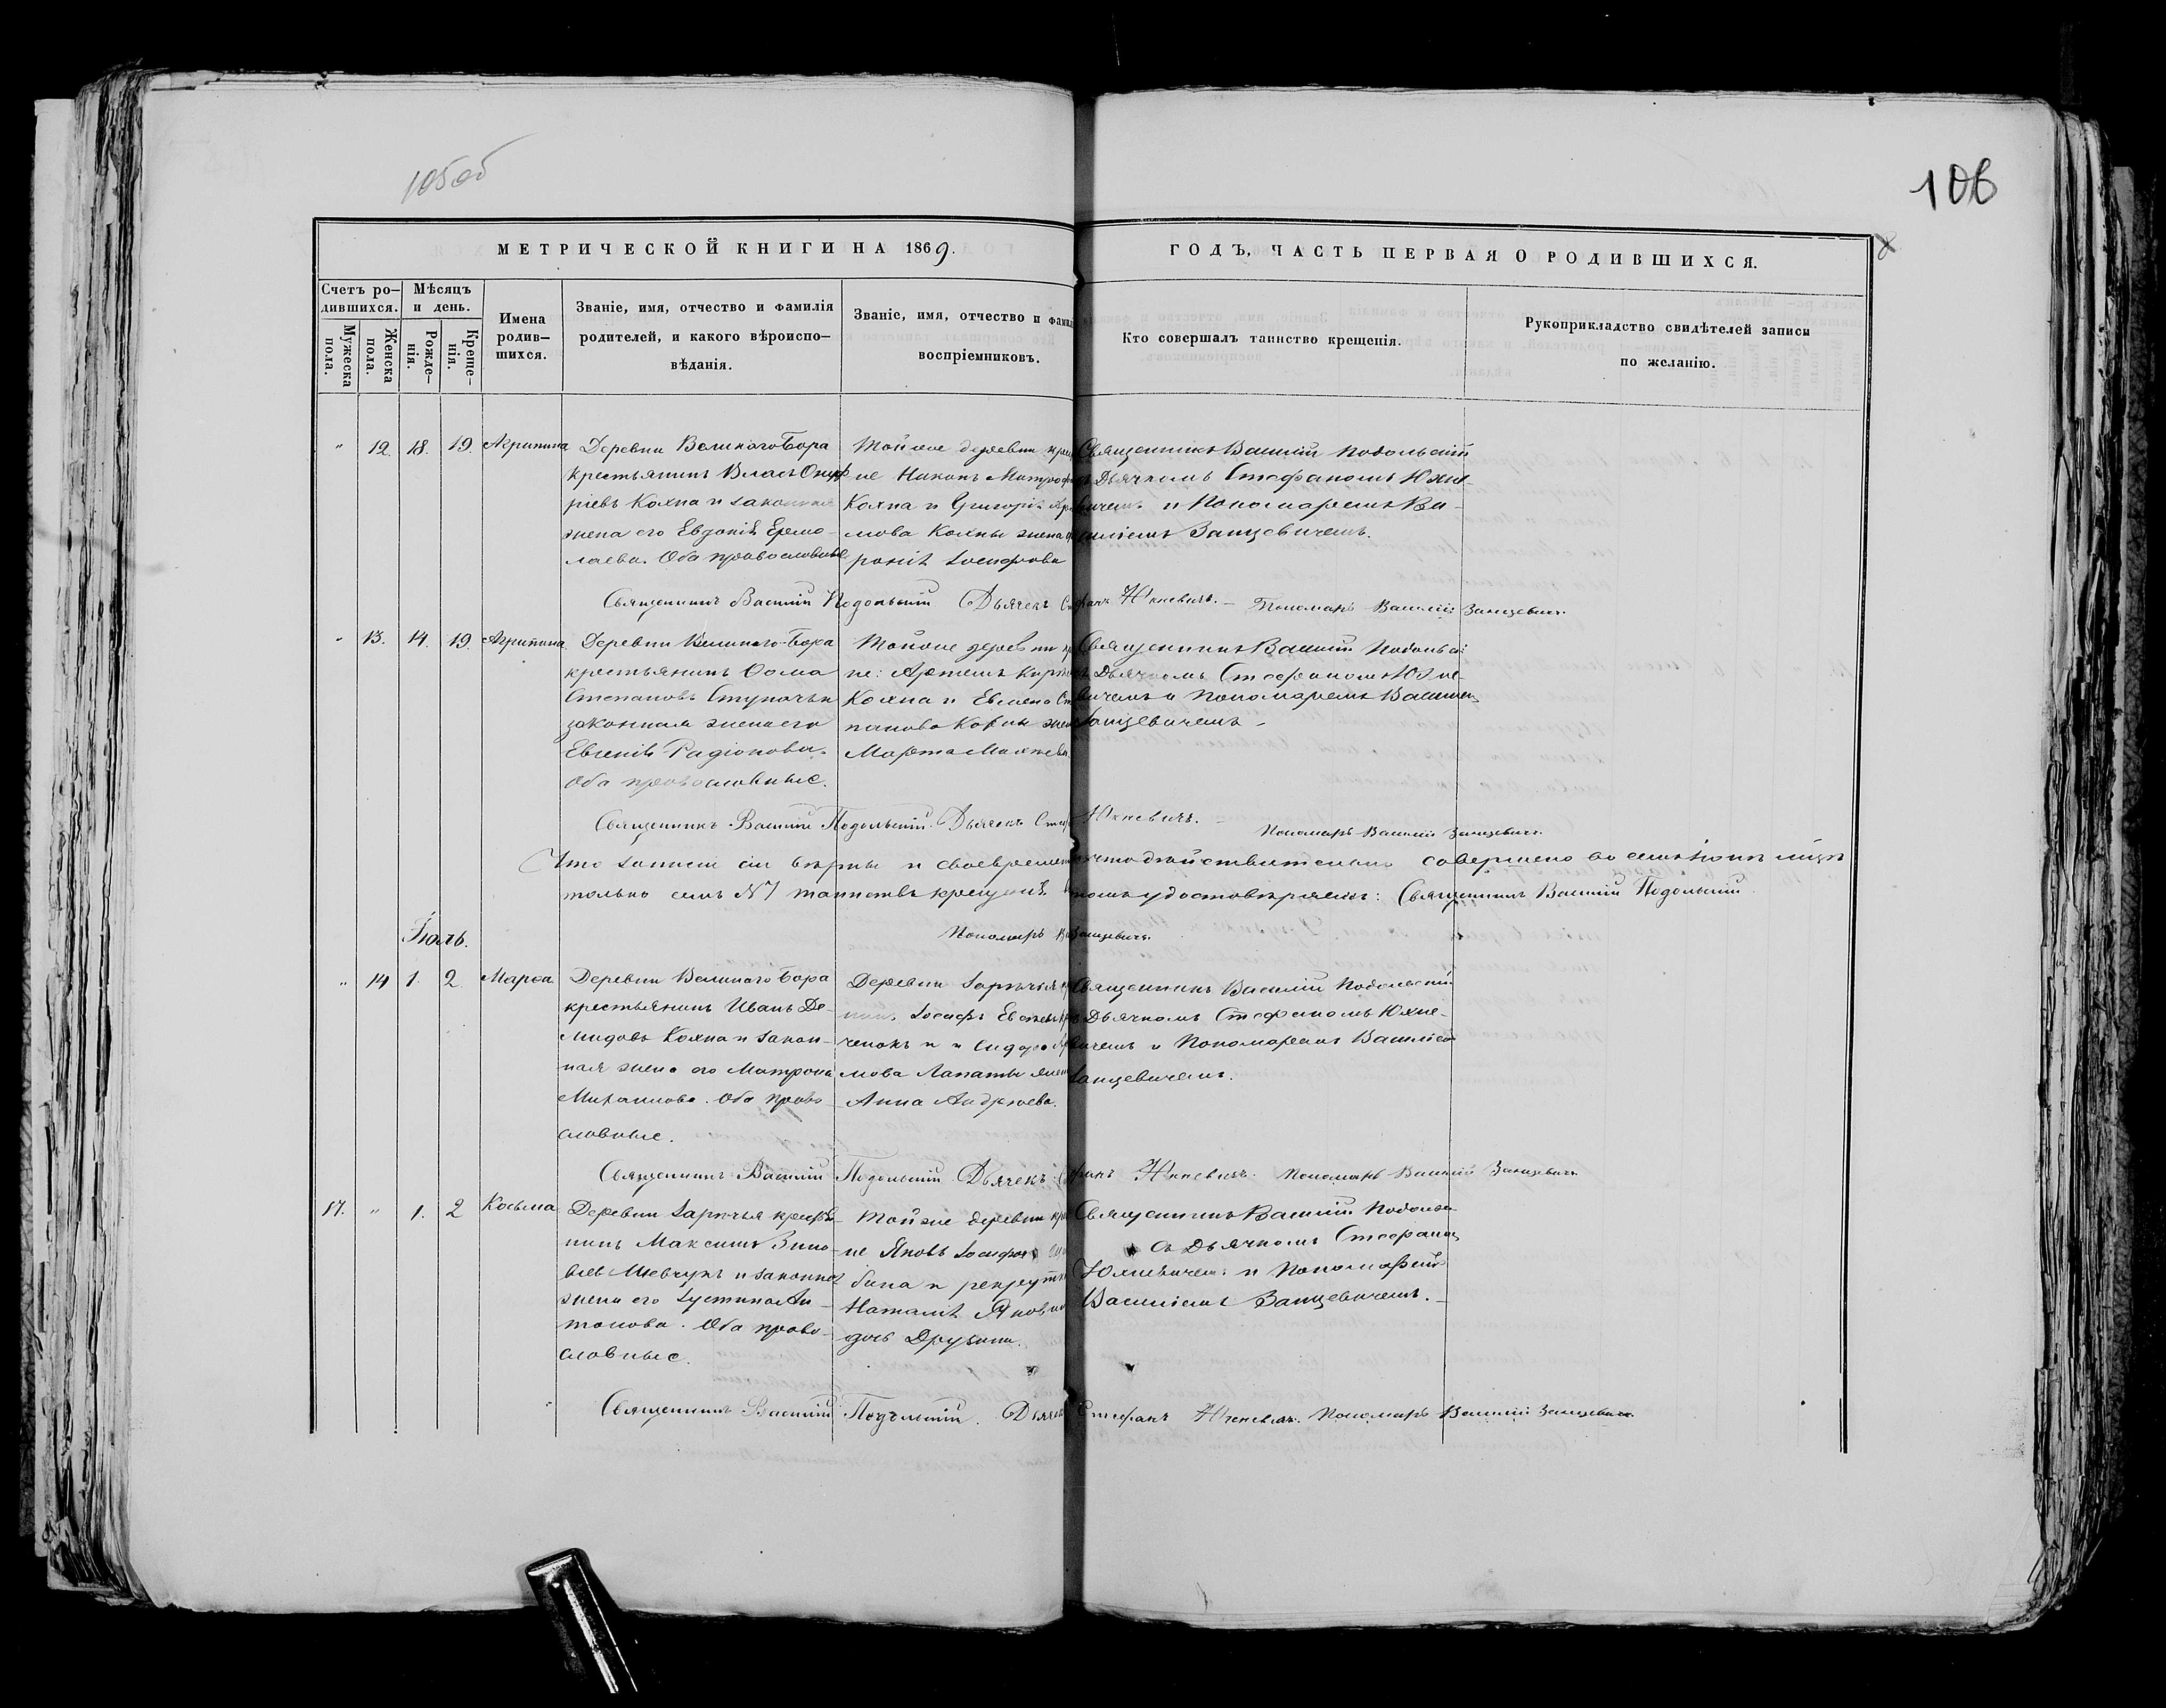 105об
106
МЕТРИЧЕСКОЙ КНИГИ НА 1869.
ГОДЪ, ЧАСТЬ ПЕРВАЯ О РОДИВШИХСЯ.
Счетъ ро-
дившихся.
Мѣсяцъ
и день.
Мужеска
пола.
Женска
пола.
Рожде-
нія.
Креще-
нія.
Имена
родив-
шихся.
Званіе, имя, отчество и фамилія
родителей, и какого вѣроиспо-
вѣданія.
Званіе, имя, отчество и фамил
воспріемниковъ.
Кто совершалъ таинство крещенія.
Рукоприкладство свидѣтелей записи
по желанію.
" 12 18. 19. Агрипина
Деревни Великаго Бора
крестьянинъ Власъ Онуф
ріевъ Кохна и законная
жена его Евдокія Ермо-
лаева. Оба православные
Тойже деревни крес
не Никонъ Митроф
Кохна и Григорія
мова Кохны жена
ронія Іосифова
Священникъ Василій Подольскій
съ Дьячкомъ Стефаномъ Юхне-
вичемъ и Пономаремъ Ва-
силіемъ Занцевичемъ.
Священникъ Василій Подольскій Дьячекъ Стефанъ Юхневичъ. — Пономарь Василій Занцевичъ.
" 13. 14. 19. Агрипина
Деревни Великаго-Бора
крестьянинъ Ѳома
Степановъ Ступачъ и
законная жена его
Евгенія Радіонова.
Оба православные.
Тойже деревни
не: Артемъ
Кохна и
панова жена
Марта
Священникъ Василій Подольскій
съ Дьячкомъ Стефаномъ Юхне-
вичемъ и Пономаремъ Василіем
Занцевичемъ —
Священникъ Василій Подольскій. Дьячекъ Стеф Юхневичъ. —
Пономарь Василій Занцевичъ.
Что записи сіи вѣрны и своевременны и что дѣйствительно совершено во семъ
только семь № 7 таинствъ крещенія въ томъ удостовѣряемъ: Священникъ Василій Подольскій
Пономарь Ва Занцевичъ.
Іюль.
" 14 1. 2. Марѳа
Деревни Великаго Бора
крестьянинъ Иванъ Де-
мидовъ Кохна и закон-
ная жена его Матрона
Михаилова. Оба право-
славные.
Деревни Зарѣчья
Іосифъ
ченокъ и Сидора
мова Лапаты жен
Анна Андреева.
Священникъ Василій Подольскій
съ Дьячкомъ Стефаномъ Юхне-
вичемъ и Пономаремъ Василіем
Занцевичемъ.
Священникъ Василій Подольскій Дьячекъ Стефанъ Юхневичъ. Пономарь Василій Занцевичъ.
17. " 1. 2 Косьма
Деревни Зарѣчья крестья-
нинъ Максимъ Зино-
віевъ Шевчукъ и законная
жена его Іустина Ан-
тонова. Оба право-
славные.
Тойже деревни кре
не Яковъ Іосифовъ
бина и рекрутка
Наталія Яковл
дочь
Священникъ Василій Подольс
съ Дьячкомъ Стефаном
Юхневичемъ и Пономаремъ
Василіемъ Занцевичемъ. —
Священникъ Василій Подольскій. Дьячекъ Стефанъ Юхневичъ. Пономарь Василій Занцевичъ.